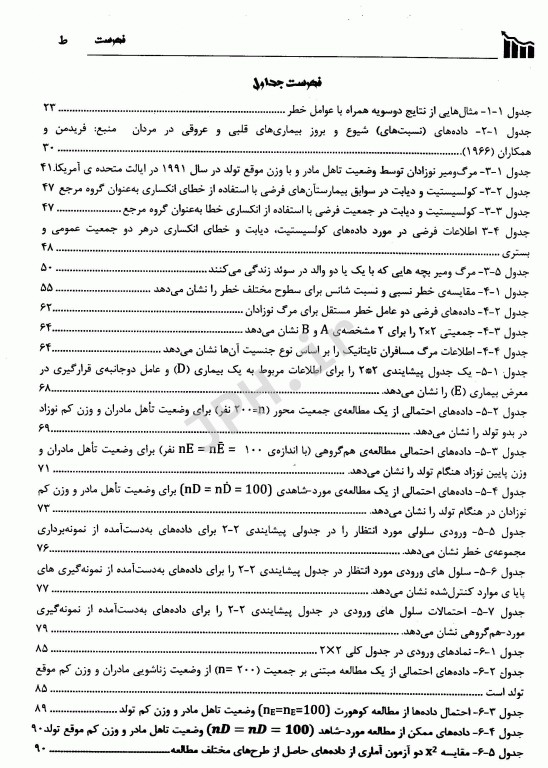 فهرست ط
فهرست جداول
جدول ۱-۱- مثال‌هایی از نتایج دوسویه همراه با عوامل خطر ۲۳
جدول ۱-۲- داده‌های (نسبت‌های) شیوع و بروز بیماری‌های قلبی و عروقی در مردان منبع: فریدمن و
همکاران (۱۹۶۶) ۳۰
جدول ۱-۳- مرگ‌ومیر نوزادان توسط وضعیت تاهل مادر و با وزن موقع تولد در سال ۱۹۹۱ در ایالت متحده ی آمریکا. ۴۱
جدول ۲-۳- کولسیستیت و دیابت در سوابق بیمارستان‌های فرضی با استفاده از خطای انکساری به‌عنوان گروه مرجع ۴۷
جدول ۳-۳- کولسیستیت و دیابت در جمعیت فرضی با استفاده از انکساری خطا به‌عنوان گروه مرجع ۴۷
جدول ۴-۳ اطلاعات فرضی در مورد داده‌های کولسیستیت، دیابت و خطای انکساری درهر دو جمعیت عمومی و
بستری ۴۸
جدول ۵-۳- مرگ ومیر بچه هایی که با یک یا دو والد در سوئد زندگی می‌کنند ۵۰
جدول ۱-۴- مقایسه‌ی خطر نسبی و نسبت شانس برای سطوح مختلف خطر را نشان می‌دهد ۵۵
جدول ۲-۴- داده‌های فرضی دو عامل خطر مستقل برای مرگ نوزادان ۶۲
جدول ۳-۴- جمعیتی ۲×۲ را برای ۲ مشخصه‌ی A و B نشان می‌دهد ۶۴
جدول ۴-۴- اطلاعات مرگ مسافران تایتانیک را بر اساس نوع جنسیت آن‌ها نشان می‌دهد ۶۴
جدول ۱-۵- یک جدول پیشایندی ۲*۲ را برای اطلاعات مربوط به یک بیماری (D) و عامل دوجانبه‌ی قرارگیری در
معرض بیماری (E) را نشان می‌دهد. ۶۸
جدول ۲-۵- داده‌های احتمالی از یک مطالعه‌ی جمعیت محور (n=۲۰۰ نفر) برای وضعیت تأهل مادران و وزن کم نوزاد
در بدو تولد را نشان می‌دهد. ۶۹
جدول ۳-۵- داده‌های احتمالی مطالعه‌ی هم‌گروهی (با اندازه‌ی ۱۰۰ = nE = nĒ نفر) برای وضعیت تأهل مادران و
وزن پایین نوزاد هنگام تولد را نشان می‌دهد. ۷۱
جدول ۴-۵- داده‌های احتمالی از یک مطالعه‌ی مورد-شاهدی (nD = nD̄ = 100) برای وضعیت تأهل مادر و وزن کم
نوزادان در هنگام تولد را نشان می‌دهد. ۷۳
جدول ۵-۵- ورودی سلولی مورد انتظار را در جدولی پیشایندی ۲-۲ برای داده‌های به‌دست‌آمده از نمونه‌برداری
مجموعه‌ی خطر نشان می‌دهد. ۷۶
جدول ۶-۵- سلول های ورودی مورد انتظار در جدول پیشایندی ۲-۲ را برای داده‌های به‌دست‌آمده از نمونه‌گیری های
پایا ی موارد کنترل‌شده نشان می‌دهد. ۷۷
جدول ۷-۵- احتمالات سلول های ورودی در جدول پیشایندی ۲-۲ را برای داده‌های به‌دست‌آمده از نمونه‌گیری
مورد-هم‌گروهی نشان می‌دهد. ۷۹
جدول ۱-۶- نمادهای ورودی در جدول کلی ۲×۲ ۸۵
جدول ۲-۶- داده‌های احتمالی از یک مطالعه مبتنی بر جمعیت (n= ۲۰۰) از وضعیت زناشویی مادران و وزن کم موقع
تولد است ۸۵
جدول ۳-۶- احتمال داده‌ها از مطالعه کوهورت (nE=nE=100) وضعیت تاهل مادر و وزن کم تولد ۸۹
جدول ۴-۶- داده‌های ممکن از مطالعه مورد-شاهد (nD = nD = 100) وضعیت تاهل مادر و وزن کم موقع تولد ۹۰
جدول ۵-۶- مقایسه x² دو آزمون آماری از داده‌های حاصل از طرح‌های مختلف مطالعه ۹۰
JPH.ir